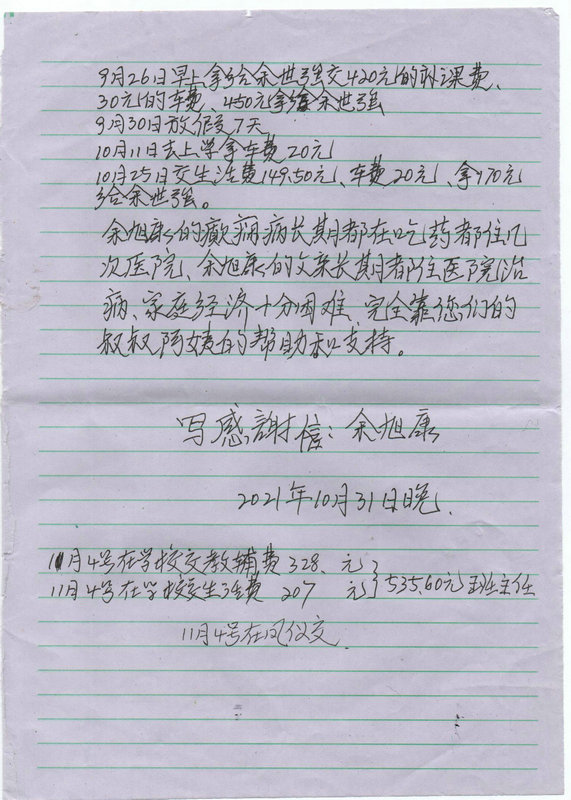 9月26日早上拿给余世强交420元的补课费、
30元的车费、450元拿给余世强
9月30日放假7天
10月11日去上学拿车费20元
10月25日交生活费149.50元、车费20元、拿170元
给余世强。
余旭康的癫痫病长期都在吃药都住几
次医院、余旭康的父亲长期都住医院治
病、家庭经济十分困难、完全靠您们的
叔叔阿姨的帮助和支持。
写感謝信：余旭康
2021年10月31日晚.
11月4号在学校交教辅费 328. 元
11月4号在学校交生活费 207 元 } 535.60元 班主任
11月4号在风仪交.